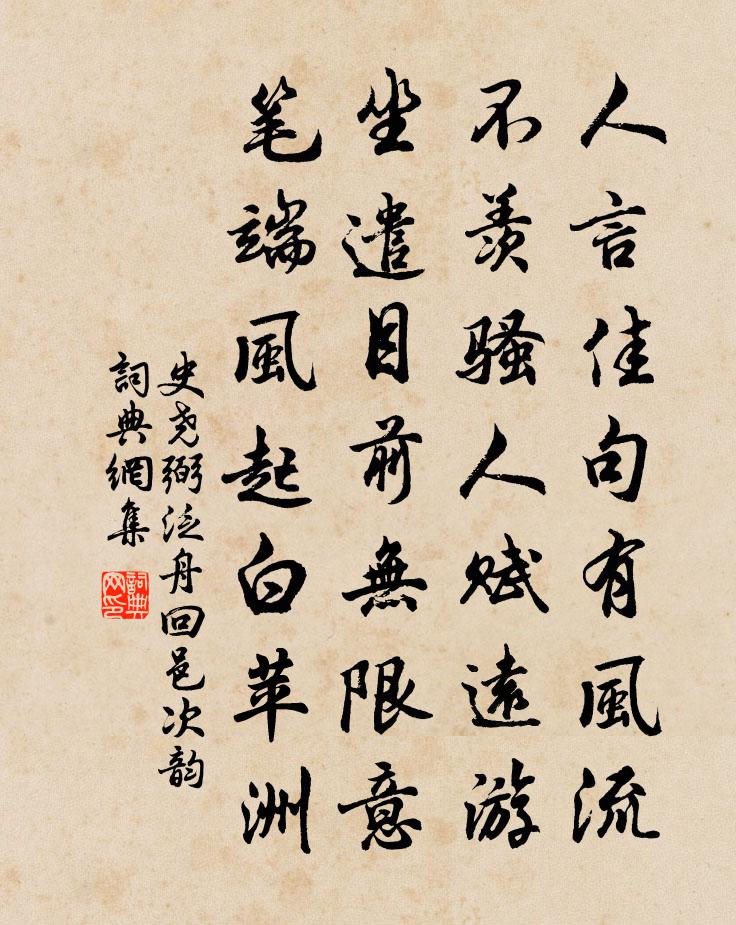 人言佳句有風流
不羨骚人赋遠游
坐遣目前無限意
笔端風起白苹洲
史尧弼泛舟回邑次韵
詞典網集
詞典网印